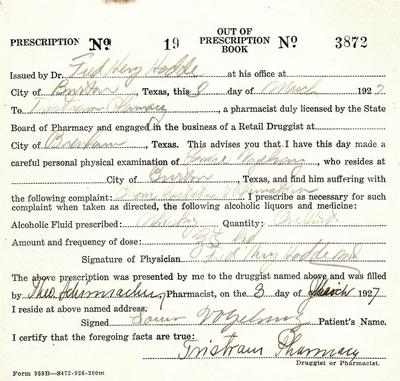 PRESCRIPTION No. 19 OUT OF PRESCRIPTION BOOK No. 3872
Issued by Dr. Fred Henry Hodde at his office at
City of Burton, Texas, this 3 day of March 1927
To Tristram Pharmacy, a pharmacist duly licensed by the State
Board of Pharmacy and engaged in the business of a Retail Druggist at
City of Burton, Texas. This advises you that I have this day made a
careful personal physical examination of Louis, who resides at
City of Burton Texas, and find him suffering with
the following complaint: I prescribe as necessary for such
complaint when taken as directed, the following alcoholic liquors and medicine:
Alcoholic Fluid prescribed: Quantity:
Amount and frequency of dose:
Signature of Physician Fred Henry Hodde MD
The above prescription was presented by me to the druggist named above and was filled
by Theo. Schumacher, Pharmacist, on the 3 day of March 1927
I reside at above named address.
Signed Louis Patient's Name.
I certify that the foregoing facts are true:
Tristram Pharmacy
Druggist or Pharmacist.
Form 959B—S472-926-300m